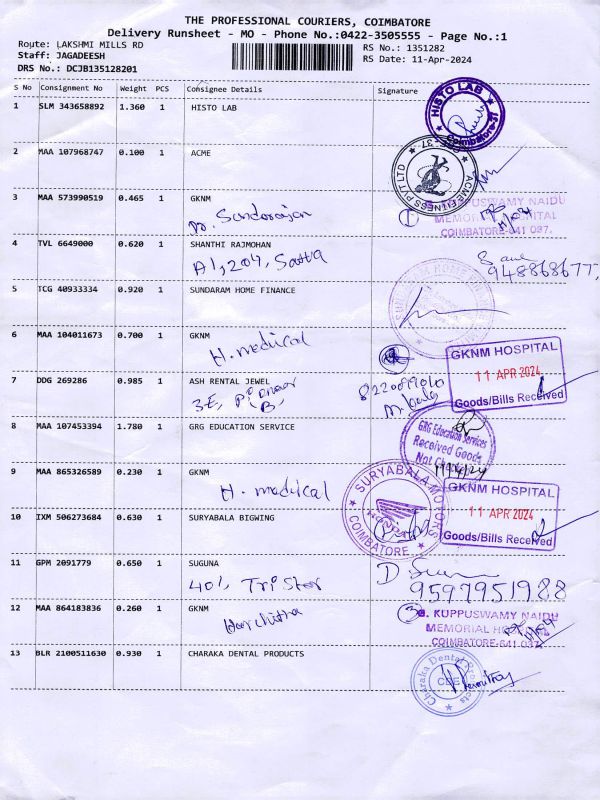 THE PROFESSIONAL COURIERS, COIMBATORE
Delivery Runsheet - MO - Phone No.:0422-3505555 - Page No.:1
Route: LAKSHMI MILLS RD
RS No.: 1351282
Staff: JAGADEESH
RS Date: 11-Apr-2024
DRS No.: DCJB135128201
S No Consignment No Weight PCS Consignee Details Signature
1 SLM 343658892 1.360 1 HISTO LAB
HISTO LAB
2 MAA 107968747 0.100 1 ACME
ACME FITNESS PVT LTD
3 MAA 573990519 0.465 1 GKNM
Sundarajan
KUPPUSWAMY NAIDU
MEMORIAL HOSPITAL
COIMBATORE-641 037.
4 TVL 6649000 0.620 1 SHANTHI RAJMOHAN
A1, 204, Sattva
5 TCG 40933334 0.920 1 SUNDARAM HOME FINANCE
SUNDARAM HOME FINANCE
6 MAA 104011673 0.700 1 GKNM
H. medical
GKNM HOSPITAL
11 APR 2024
Goods/Bills Received
7 DDG 269286 0.985 1 ASH RENTAL JEWEL
3E,
8 MAA 107453394 1.780 1 GRG EDUCATION SERVICE
GRG Education Services
Received Goods
Not Checked
9 MAA 865326589 0.230 1 GKNM
H. medical
GKNM HOSPITAL
11 APR 2024
Goods/Bills Received
10 IXM 506273684 0.630 1 SURYABALA BIGWING
SURYABALA MOTORS
HONDA
COIMBATORE
11 GPM 2091779 0.650 1 SUGUNA
401, Tri Star
9597951988
12 MAA 864183836 0.260 1 GKNM
Harchitha
G. KUPPUSWAMY NAIDU
MEMORIAL HOSPITAL
COIMBATORE-641 037.
13 BLR 2100511630 0.930 1 CHARAKA DENTAL PRODUCTS
Charaka Dental Products
CBE